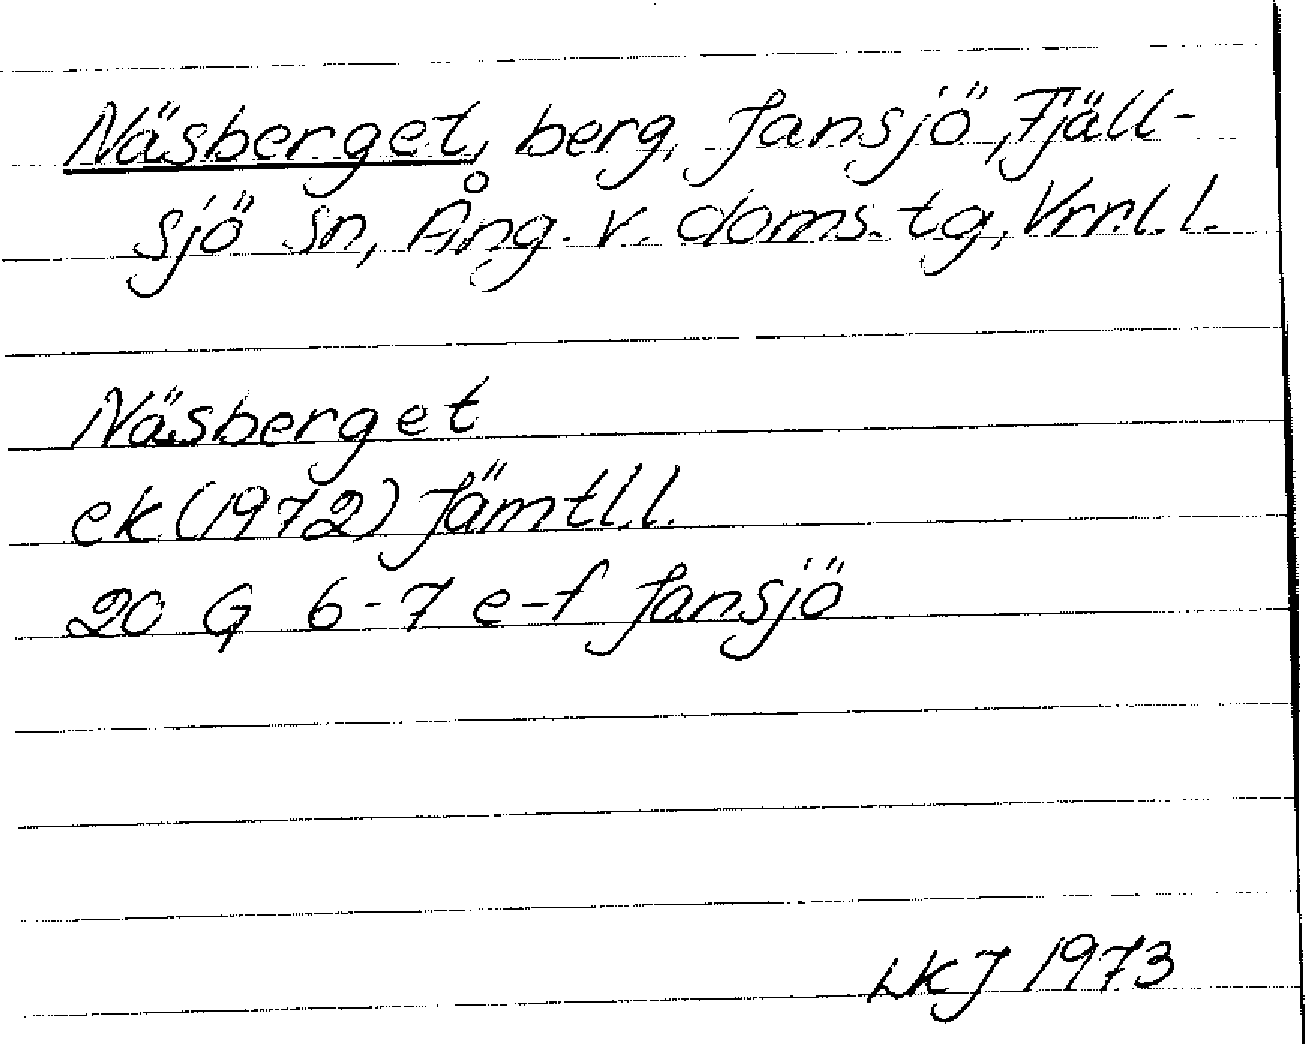 Näsberget, berg, Jansjö, Fjäll-
sjö sn, Ång. v. doms. tg, Vrnl. l.
Näsberget
ek (1972) Jämtl. l.
20 G 6-7 e-f Jansjö
LKJ 1973